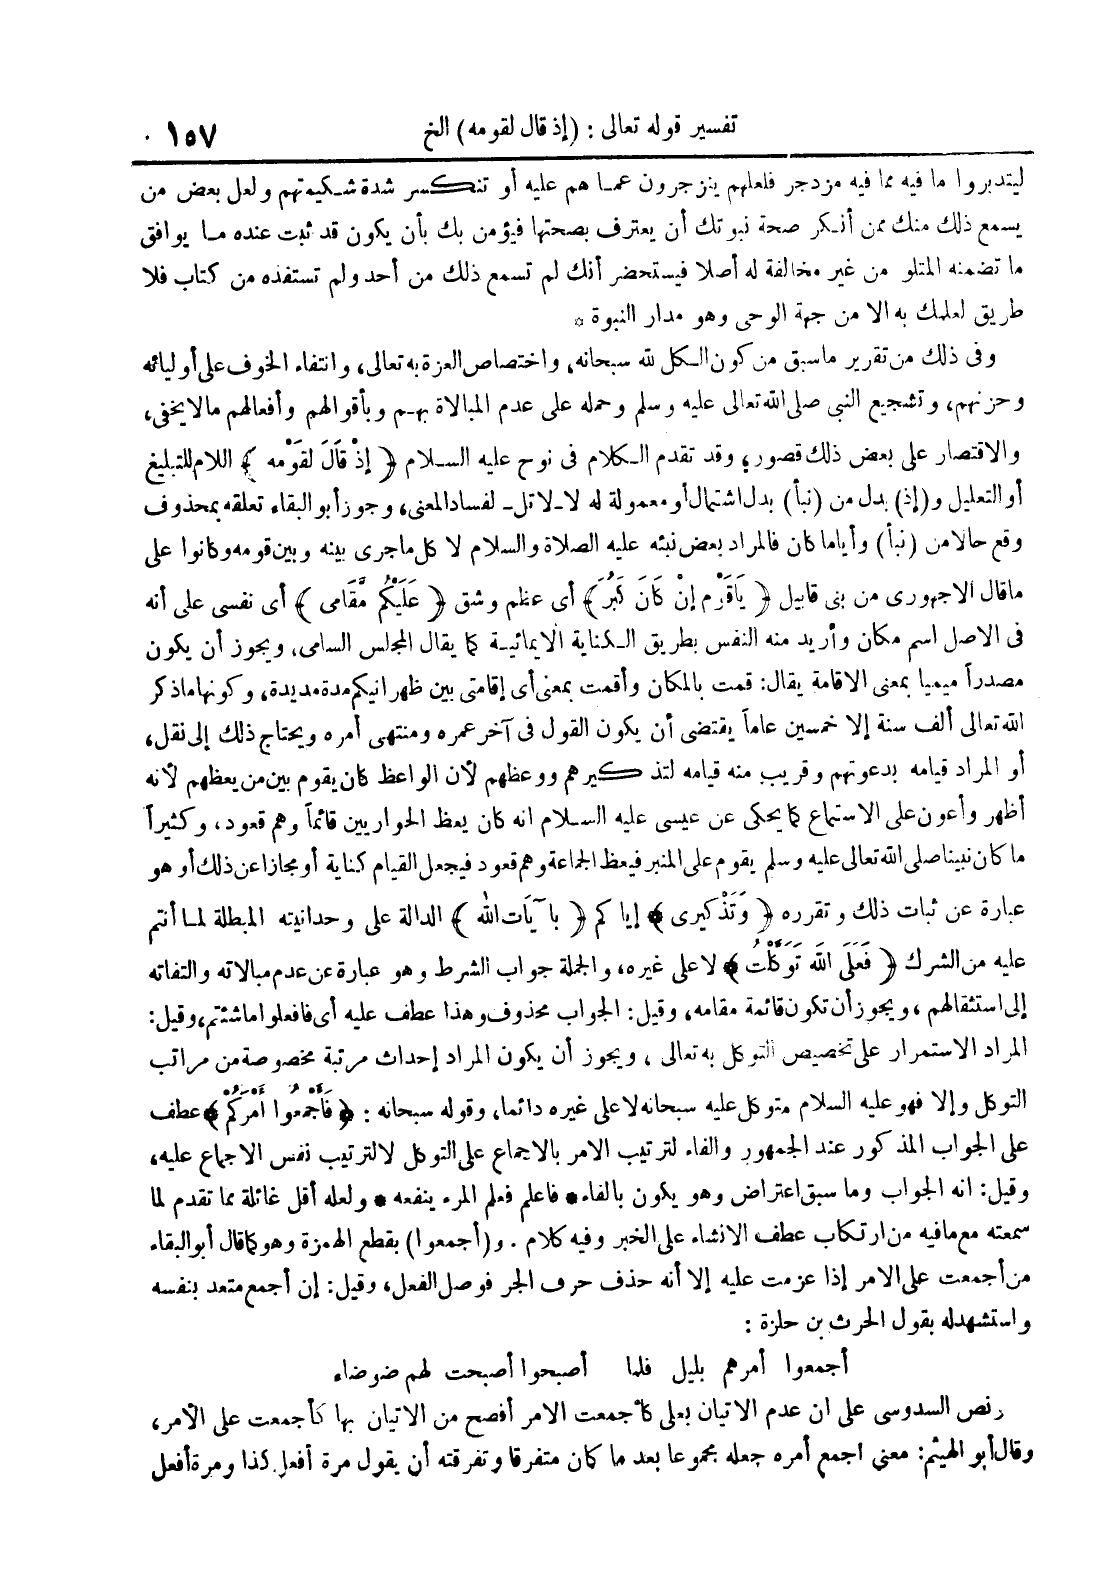 تفسير قوله تعالى : (إذ قال لقومه) الخ ١٥٧
ليتدبروا ما فيه مما فيه مزدجر فلعلهم ينزجرون عما هم عليه أو تنكسر شدة شكيمتهم ولعل بعض من
يسمع ذلك منك ممن أنكر صحة نبوتك أن يعترف بصحتها فيؤمن بك بأن يكون قد ثبت عنده ما يوافق
ما تضمنه المتلو من غير مخالفة له أصلا فيستحضر أنك لم تسمع ذلك من أحد ولم تستفده من كتاب فلا
طريق لعلمك به الا من جهة الوحى وهو مدار النبوة *
وفى ذلك من تقرير ما سبق من كون الكل لله سبحانه، واختصاص العزة به تعالى، وانتفاء الخوف على أوليائه
وحزنهم، وتشجيع النبى صلى الله تعالى عليه وسلم وحمله على عدم المبالاة بهم وبأقوالهم وأفعالهم ما لا يخفى،
والاقتصار على بعض ذلك قصور، وقد تقدم الكلام فى نوح عليه السلام ﴿ إذْ قَالَ لقَوْمه ﴾ اللام للتبليغ
أو التعليل و(إذ) بدل من (نبأ) بدل اشتمال أو معمولة له لا ـ لاتل ـ لفساد المعنى، وجوز أبو البقاء تعلقه بمحذوف
وقع حالا من (نبأ) وأياما كان فالمراد بعض نبئه عليه الصلاة والسلام لا كل ما جرى بينه وبين قومه وكانوا على
ما قال الاجهورى من بنى قابيل ﴿ يَاقَوْم إنْ كَانَ كَبُرَ ﴾ أى عظم وشق ﴿ عَلَيْكُم مَّقَامى ﴾ أى نفسى على أنه
فى الاصل اسم مكان وأريد منه النفس بطريق الكناية الايمائية كما يقال المجلس السامى، ويجوز أن يكون
مصدراً ميميا بمعنى الاقامة يقال: قمت بالمكان وأقمت بمعنى أى إقامتى بين ظهرانيكم مدة مديدة، وكونها ما ذكر
الله تعالى ألف سنة إلا خمسين عاماً يقتضى أن يكون القول فى آخر عمره ومنتهى أمره ويحتاج ذلك إلى نقل،
أو المراد قيامه بدعوتهم وقريب منه قيامه لتذكيرهم ووعظهم لأن الواعظ كان يقوم بين من يعظهم لأنه
أظهر وأعون على الاستماع كما يحكى عن عيسى عليه السلام انه كان يعظ الحواريين قائماً وهم قعود، وكثيراً
ما كان نبينا صلى الله تعالى عليه وسلم يقوم على المنبر فيعظ الجماعة وهم قعود فيجعل القيام كناية أو مجازا عن ذلك أو هو
عبارة عن ثبات ذلك وتقرره ﴿ وَتَذْكيرى ﴾ إياكم ﴿ بآيَات الله ﴾ الدالة على وحدانيته المبطلة لما أنتم
عليه من الشرك ﴿ فَعَلَى الله تَوَكَّلْتُ ﴾ لا على غيره، والجملة جواب الشرط وهو عبارة عن عدم مبالاته والتفاته
إلى استثقالهم، ويجوز أن تكون قائمة مقامه، وقيل: الجواب محذوف وهذا عطف عليه أى فافعلوا ما شئتم، وقيل:
المراد الاستمرار على تخصيص التوكل به تعالى، ويجوز أن يكون المراد إحداث مرتبة مخصوصة من مراتب
التوكل وإلا فهو عليه السلام متوكل عليه سبحانه لا على غيره دائما، وقوله سبحانه : ﴿ فَأَجْمعُوا أَمْرَكُمْ ﴾ عطف
على الجواب المذكور عند الجمهور والفاء لترتيب الامر بالاجماع على التوكل لا لترتيب نفس الاجماع عليه،
وقيل: انه الجواب وما سبق اعتراض وهو يكون بالفاء * فاعلم فعلم المرء ينفعه * ولعله أقل غائلة مما تقدم لما
سمعته مع ما فيه من ارتكاب عطف الانشاء على الخبر وفيه كلام . و(أجمعوا) بقطع الهمزة وهو كما قال أبو البقاء
من أجمعت على الامر إذا عزمت عليه إلا أنه حذف حرف الجر فوصل الفعل، وقيل: إن أجمع متعد بنفسه
واستشهد له بقول الحرث بن حلزة :
أجمعوا أمرهم بليل فلما أصبحوا أصبحت لهم ضوضاء
ونص السدوسى على ان عدم الاتيان بعلى كأجمعت الامر أفصح من الاتيان بها كأجمعت على الأمر،
وقال أبو الهيثم: معنى اجمع أمره جعله مجموعا بعد ما كان متفرقا وتفرقته أن يقول مرة أفعل كذا ومرة أفعل